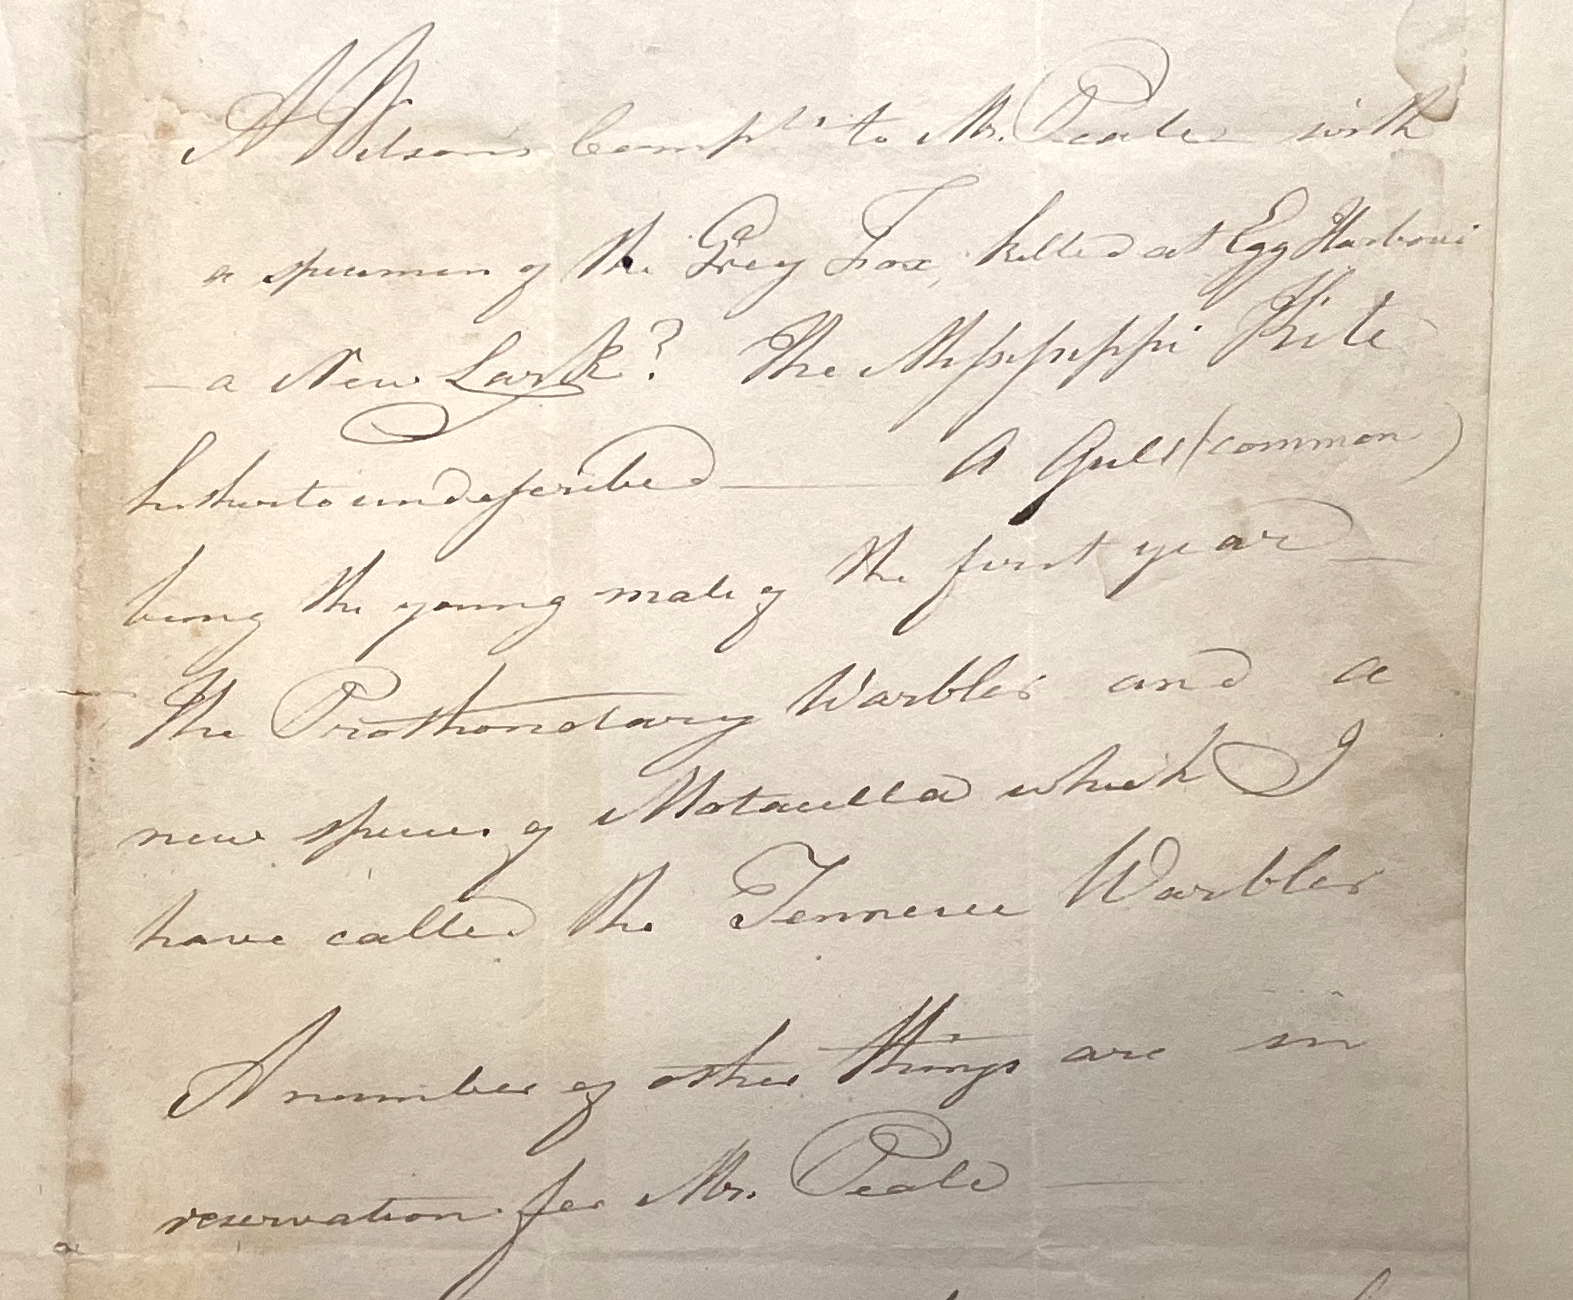 A Wilson's Complts. to Mr. Peale with
a specimen of the Grey Fox, killed at Egg Harbour
— a New Lark? The Mississippi Kite
hitherto undescribed — A Gull (common)
being the young male of the first year —
the Prothonotary Warbler and a
new species of Motacilla which I
have called the Tennesee Warbler
A number of other things are in
reservation for Mr. Peale —